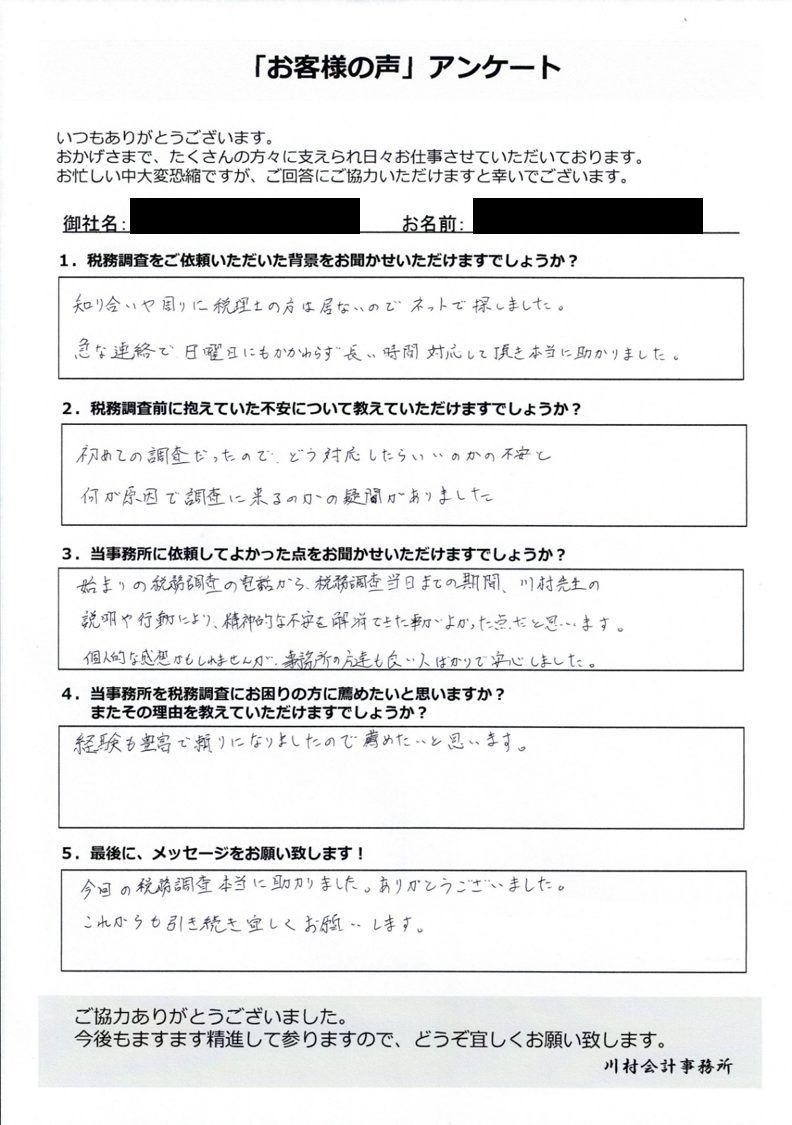 「お客様の声」アンケート
いつもありがとうございます。
おかげさまで、たくさんの方々に支えられ日々お仕事させていただいております。
お忙しい中大変恐縮ですが、ご回答にご協力いただけますと幸いでございます。
御社名: お名前:
1．税務調査をご依頼いただいた背景をお聞かせいただけますでしょうか？
知り合いや周りに税理士の方は居ないのでネットで探しました。
急な連絡で日曜日にもかかわらず長い時間対応して頂き本当に助かりました。
2．税務調査前に抱えていた不安について教えていただけますでしょうか？
初めての調査だったので、どう対応したらいいのかの不安と
何が原因で調査に来るのかの疑問がありました
3．当事務所に依頼してよかった点をお聞かせいただけますでしょうか？
始まりの税務調査の電話から、税務調査当日までの期間、川村先生の
説明や行動により、精神的な不安を解消できた事がよかった点だと思います。
個人的な感想かもしれませんが、事務所の方達も良い人ばかりで安心しました。
4．当事務所を税務調査にお困りの方に薦めたいと思いますか？
またその理由を教えていただけますでしょうか？
経験も豊富で頼りになりましたので薦めたいと思います。
5．最後に、メッセージをお願い致します！
今回の税務調査本当に助かりました。ありがとうございました。
これからも引き続き宜しくお願いします。
ご協力ありがとうございました。
今後もますます精進して参りますので、どうぞ宜しくお願い致します。
川村会計事務所